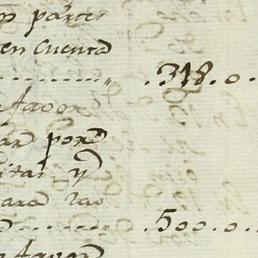 partes
en cuenta
.318.0.
Favor
ar por
itas y
para las
.500.0.
Favor